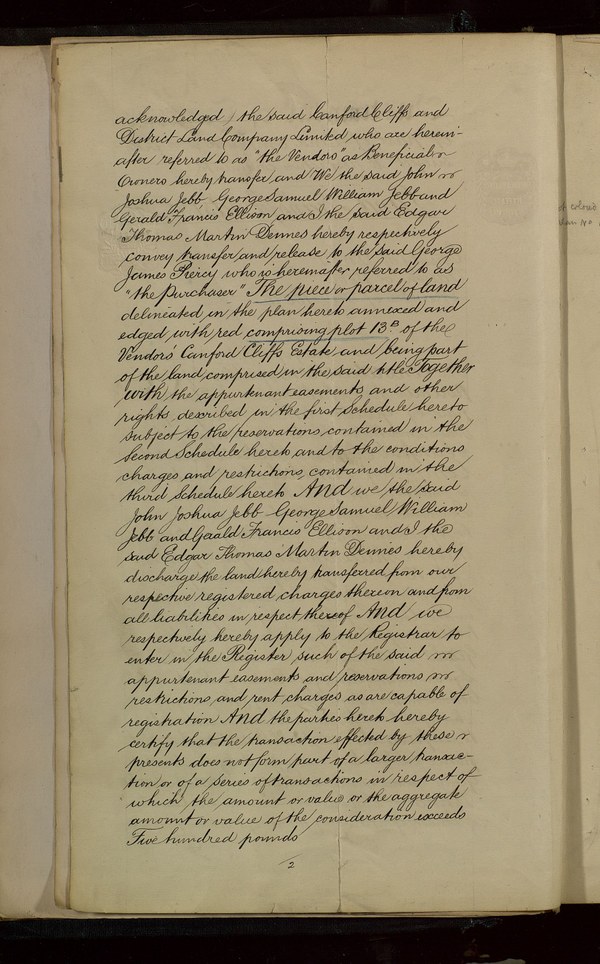 acknowledged) the said Canford Cliffs and
District Land Company Limited who are herein-
after referred to as "the Vendors" as Beneficial
Owners hereby transfer and We the said John
Joshua Jebb George Samuel William Jebb and
Gerald Francis Ellison and I the said Edgar
Thomas Martin Dennes hereby respectively
convey transfer and release to the said George
James Piercy who is hereinafter referred to as
"the Purchaser" The piece or parcel of land
delineated in the plan hereto annexed and
edged with red comprising plot 13B of the
Vendors Canford Cliffs Estate and being part
of the land comprised in the said title Together
with the appurtenant easements and other
rights described in the first Schedule hereto
subject to the reservations contained in the
Second Schedule hereto and to the conditions
charges and restrictions contained in the
third Schedule hereto And we the said
John Joshua Jebb George Samuel William
Jebb and Gerald Francis Ellison and I the
said Edgar Thomas Martin Dennes hereby
discharge the land hereby transferred from our
respective registered charges thereon and from
all liabilities in respect thereof And we
respectively hereby apply to the Registrar to
enter in the Register such of the said
appurtenant easements and reservations
restrictions and rent charges as are capable of
registration And the parties hereto hereby
certify that the transaction effected by these
presents does not form part of a larger transac-
tion or of a series of transactions in respect of
which the amount or value or the aggregate
amount or value of the consideration exceeds
Five hundred pounds
2